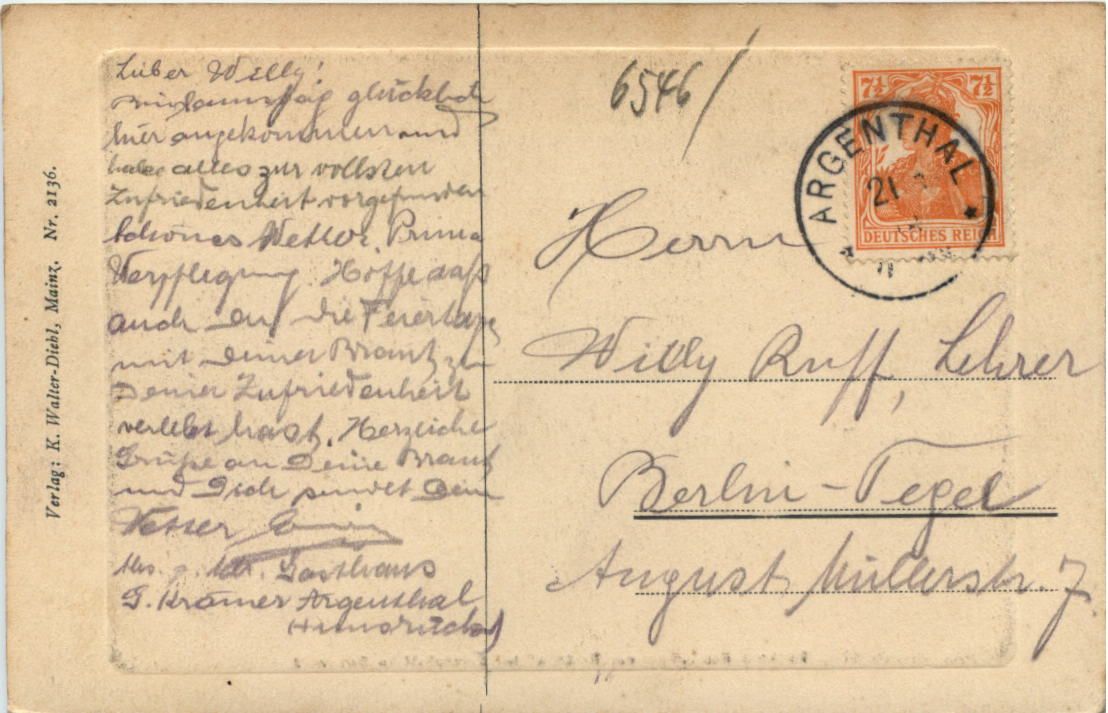 Verlag: K. Walter-Diehl, Mainz. Nr. 2136.
Lieber Willy!
glücklich
hier angekommen und
habe alles zur vollsten
Zufriedenheit vorgefunden
schönes Wetter. Prima
Verpflegung Hoffe daß
auch Du die Feiertage
mit Deiner Braut zu
Deiner Zufriedenheit
verlebt hast. Herzliche
Grüße an Deine Braut
und Dich sendet Dein
Vetter
Gasthaus
G. Krämer Argenthal
Hunsrück
6546/
7½ 7½
DEUTSCHES REICH
ARGENTHAL
21
Herrn
Willy Ruff, Lehrer
Berlin-Tegel
August Müllerstr. 7